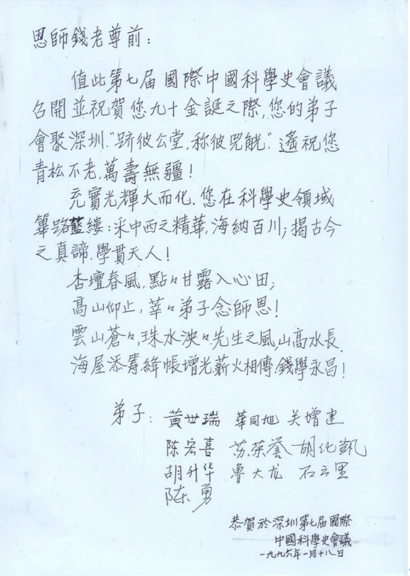 恩師錢老尊前：
值此第七届國際中國科學史會議
召開並祝賀您九十金誕之際，您的弟子
會聚深圳．"跻彼公堂，称彼兕觥"．遙祝您
青松不老，萬壽無疆！
充實光輝大而化，您在科學史領域
篳路藍缕：采中西之精華，海納百川；揭古今
之真諦，學貫天人！
杏壇春風，點々甘露入心田；
高山仰止，莘々弟子念師恩！
雲山蒼々，珠水泱々，先生之風，山高水長．
海屋添籌，絳帳增光，薪火相傳，錢學永昌！
弟子：黃世瑞 華同旭 关增建
陈宏喜 苏荣誉 胡化凯
胡升华 鲁大龙 石云里
陈勇
恭賀於深圳第七届國際
中國科學史會議
一九九六年一月十八日